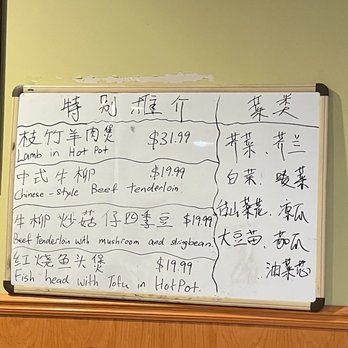 特别推介
枝竹羊肉煲 $31.99
Lamb in Hot Pot
中式牛柳 $19.99
Chinese-Style Beef tenderloin
牛柳炒菇仔四季豆 $19.99
Beef tenderloin with mushroom and stringbean.
红烧鱼头煲 $19.99
Fish head with Tofu in HotPot.
菜类
芥菜 芥兰
白菜.
大豆苗.
油菜芯